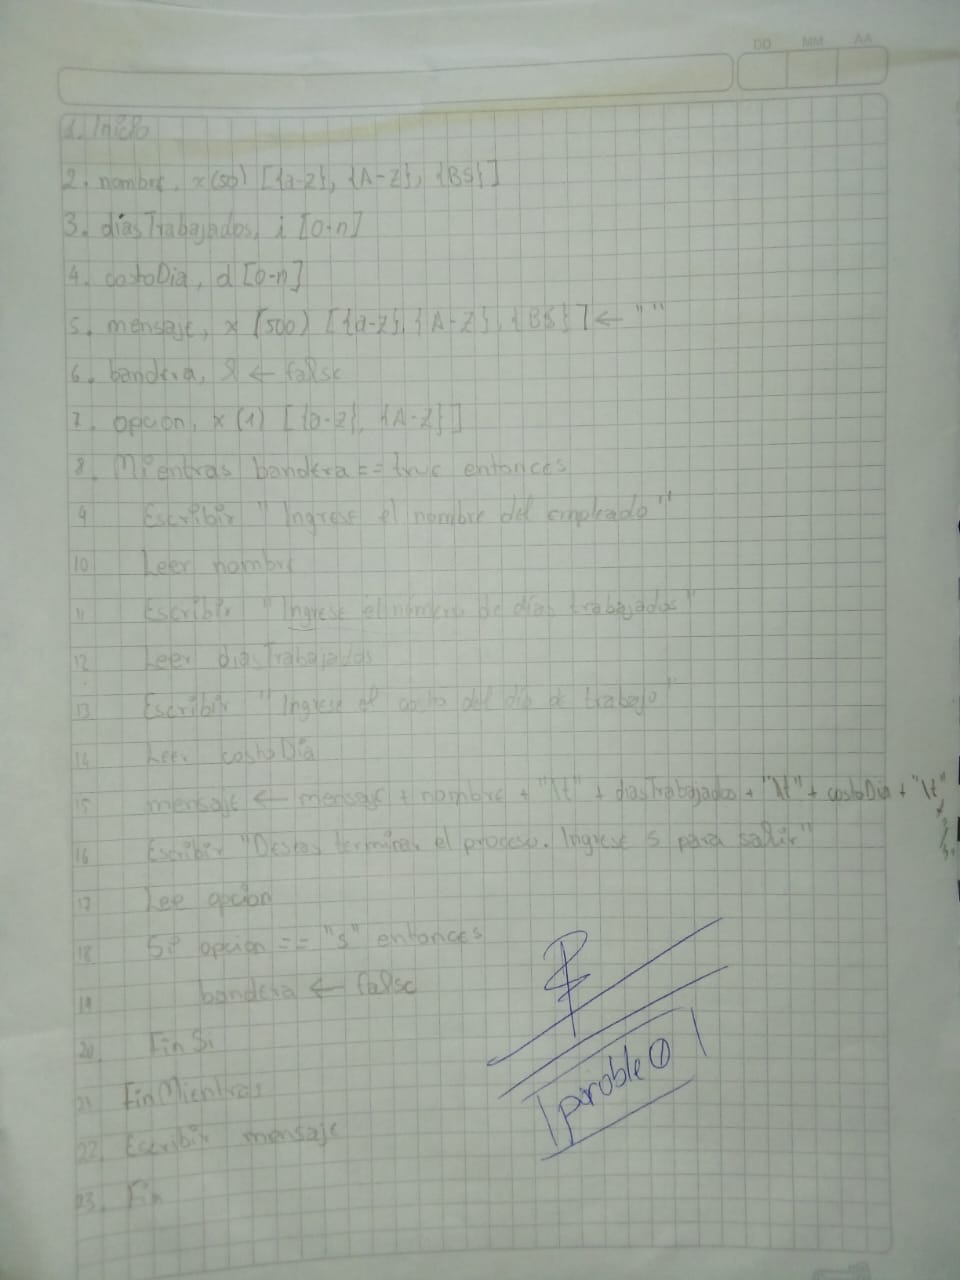 DD MM AA
1. Inicio
2. nombre, x(50) [{a-z}, {A-Z}, {BS}]
3. díasTrabajados, i [0-n]
4. costoDia, d [0-n]
5. mensaje, x (500) [{a-z}, {A-Z}, {BS}] ← " "
6. bandera, ← false
7. opcion, x (1) [{a-z}, {A-Z}]
8. Mientras bandera == true entonces
9 Escribir "Ingrese el nombre del empleado"
10 Leer nombre
11 Escribir "Ingrese el número de días trabajados"
12 Leer diasTrabajados
13 Escribir "Ingrese el costo del día de trabajo"
14 Leer costoDia
15 mensaje ← mensaje + nombre + "\t" + diasTrabajados + "\t" + costoDia + "\t"
16 Escribir "Deseas terminar el proceso. Ingrese s para salir"
17 Lee opcion
18 Si opcion == "s" entonces
19 bandera ← false
20 Fin Si
21 Fin Mientras
22. Escribir mensaje
23. Fin